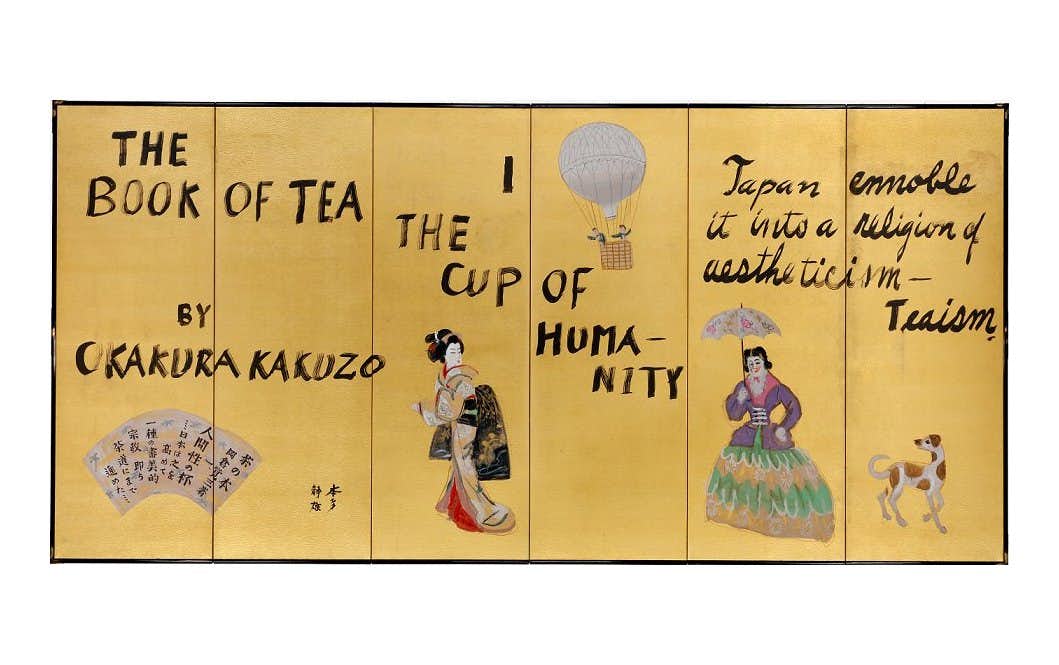 THE
BOOK OF TEA
BY
OKAKURA KAKUZO
I
THE
CUP OF
HUMA-
NITY
Japan ennoble
it into a religion of
aestheticism—
Teaism.
茶の本
岡倉覚三著
人間性の杯
…日本は之を
高めて
一種の審美的
宗教即ち
茶道にまで
進めた…
本多
静雄